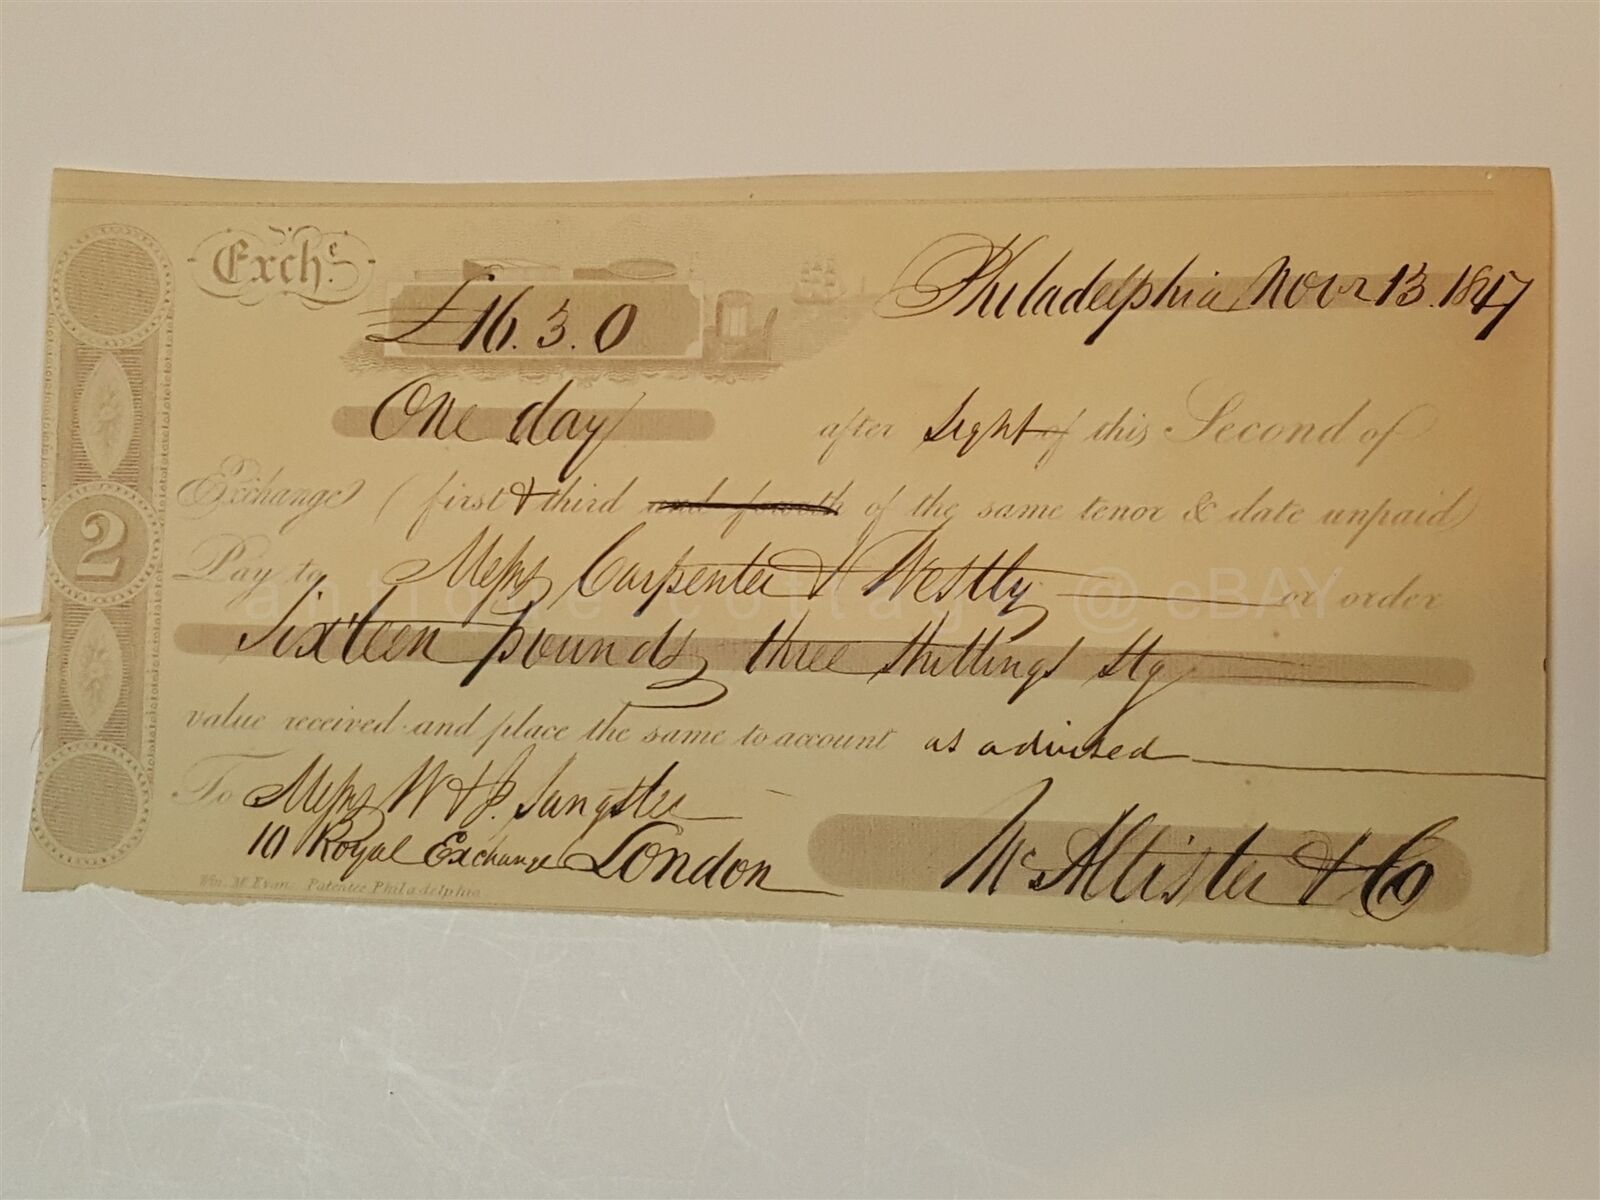 Exchᵉ.
£16.3.0
Philadelphia Novr 13. 1847
One day after sight of this Second of
Exchange (first & third and fourth of the same tenor & date unpaid)
Pay to Messrs Carpenter & Westly or order
Sixteen pounds three shillings Stg
value received and place the same to account as advised
To Messrs W & J. Sangster
10 Royal Exchange London
McAllister & Co
Wm. McEvan Patentee Philadelphia
2
antique cottage @ eBAY